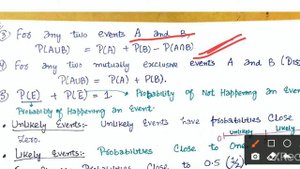 ③ For any two events A and B,
P(AUB) = P(A) + P(B) - P(A∩B)
④ For any two mutually exclusive events A and B (Dis
P(AUB) = P(A) + P(B).
P(E) + P(E̅) = 1 → Probability of Not Happening an Event
Probability of Happening an Event.
• Unlikely Events:- Unlikely Events have probabilities Close
Zero. Unlikely
• Likely Events:- Probabilities Close to One
Probabilities Close to 0.5